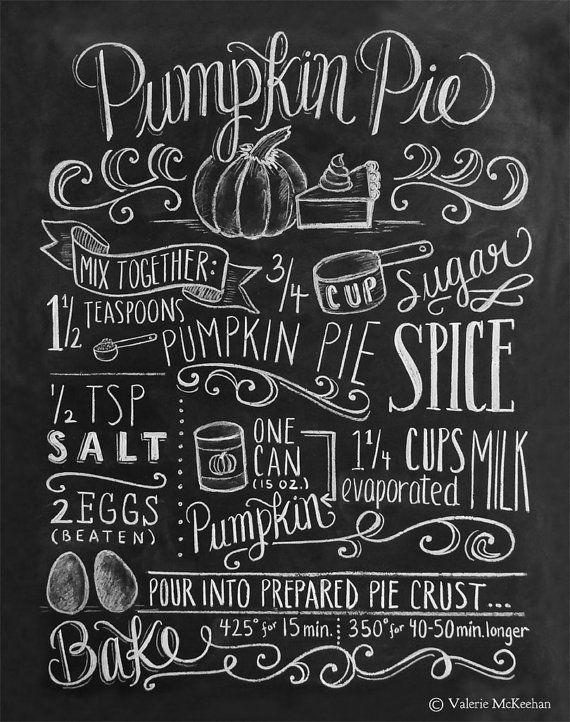 Pumpkin Pie
MIX TOGETHER:
3/4 CUP Sugar
1 1/2 TEASPOONS
PUMPKIN PIE SPICE
1/2 TSP
SALT
2 EGGS
(BEATEN)
ONE
CAN
(15 OZ.)
Pumpkin
1 1/4 CUPS
evaporated
MILK
POUR INTO PREPARED PIE CRUST...
Bake 425° for 15 min. 350° for 40-50 min. longer
© VALERIE MCKEEHAN